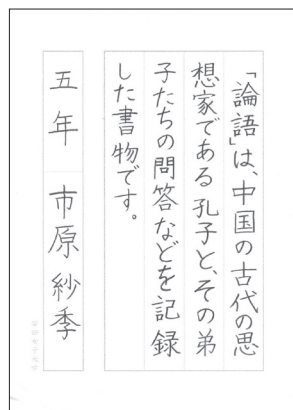 「論語」は、中国の古代の思
想家である孔子と、その弟
子たちの問答などを記録
した書物です。
五年 市原紗季